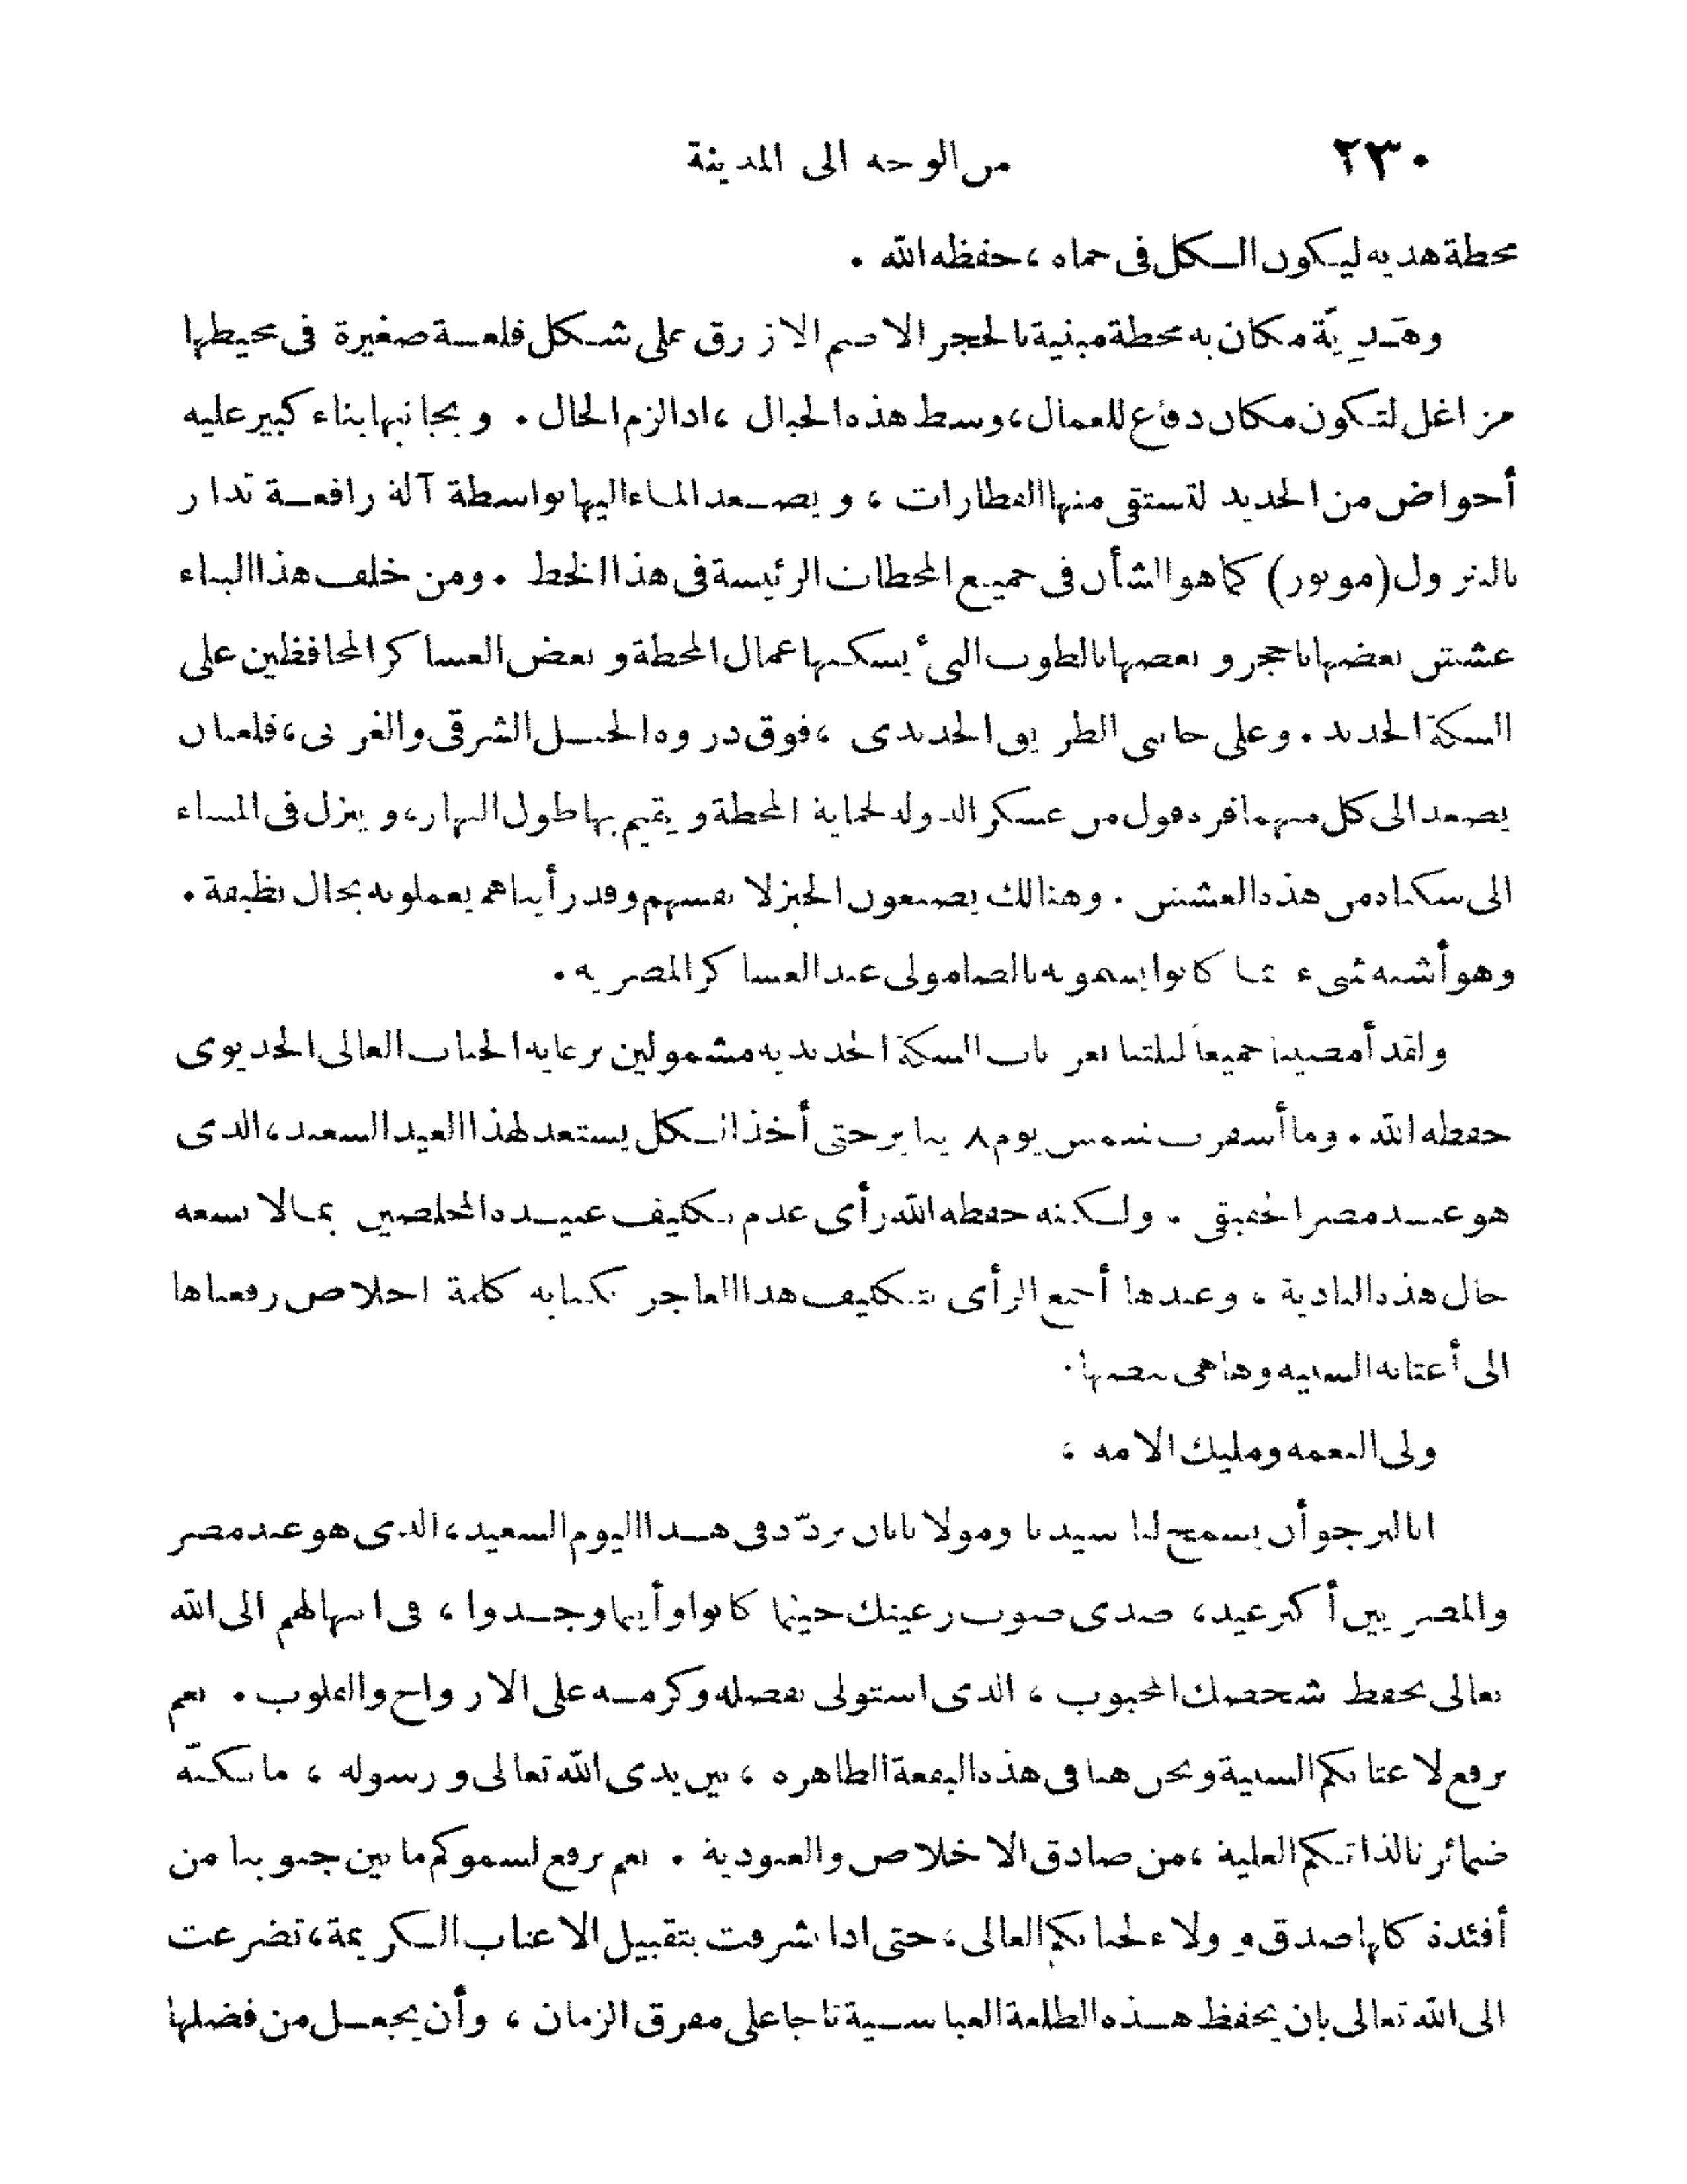 ٢٣٠ من الوجه الى المدينة
محطة هديه ليكون الكل فى حماه ، حفظه الله .
وهَدِيَّة مكان به محطة مبنية بالحجر الاصم الازرق على شكل قلعة صغيرة فى محيطها
مزاغل لتكون مكان دفاع للعمال ، وسط هذه الجبال ، اذا لزم الحال . وبجانبها بناء كبير عليه
أحواض من الحديد لتستقى منها القطارات ، ويصعد الماء اليها بواسطة آلة رافعة تدار
بالبترول (موتور) كما هو الشأن فى جميع المحطات الرئيسة فى هذا الخط . ومن خلف هذا البناء
عشش بعضها بالحجر وبعضها بالطوب التى يسكنها عمال المحطة وبعض العساكر المحافظين على
السكة الحديد . وعلى جانبى الطريق الحديدى ، فوق ذروة الجبل الشرقى والغربى ، قلعتان
يصعد الى كل منهما قره قول من عسكر الدولة لحماية المحطة ويقيم بها طول النهار ، وينزل فى المساء
الى سكناه من هذه العشش . وهنالك يصنعون الخبز لانفسهم وقد رأيناهم يعملونه بحال نظيفة .
وهو أشبه شىء بما كانوا يسمونه بالصامولى عند العساكر المصرية .
ولقد أمضينا جميعاً ليلتنا بعربات السكة الحديدية مشمولين برعاية الجناب العالى الخديوى
حفظه الله . وما أسفرت شمس يوم ٨ يناير حتى أخذ الكل يستعد لهذا العيد السعيد ، الذى
هو عيد مصر الحقيقى . ولكنه حفظه الله رأى عدم تكليف عبيده المخلصين بما لا تسعه
حال هذه البادية ، وعندها أجمع الرأى بتكليف هذا العاجز بكتابة كلمة اخلاص رفعناها
الى أعتابه السنيه وهاهى بنصها .
ولى النعمه ومليك الامه ،
انا لنرجو أن يسمح لنا سيدنا ومولانا بان نردّد فى هذا اليوم السعيد ، الذى هو عند مصر
والمصريين أكبر عيد ، صدى صوت رعيتك حيثما كانوا وأينما وجدوا ، فى ابتهالهم الى الله
تعالى بحفظ شخصك المحبوب ، الذى استولى بفضله وكرمه على الارواح والقلوب . نعم
نرفع لاعتابكم السنية ونحن هنا فى هذه البقعة الطاهره ، بين يدى الله تعالى ورسوله ، ما تكنّه
ضمائرنا لذاتكم العلية ، من صادق الاخلاص والعبودية . نعم نرفع لسموكم ما بين جنوبنا من
أفئدة كلها صدق وولاء لجنابكم العالى ، حتى اذا شرفت بتقبيل الاعتاب الكريمة ، تضرعت
الى الله تعالى بان يحفظ هذه الطلعة العباسية تاجا على مفرق الزمان ، وأن يجعل من فضلها